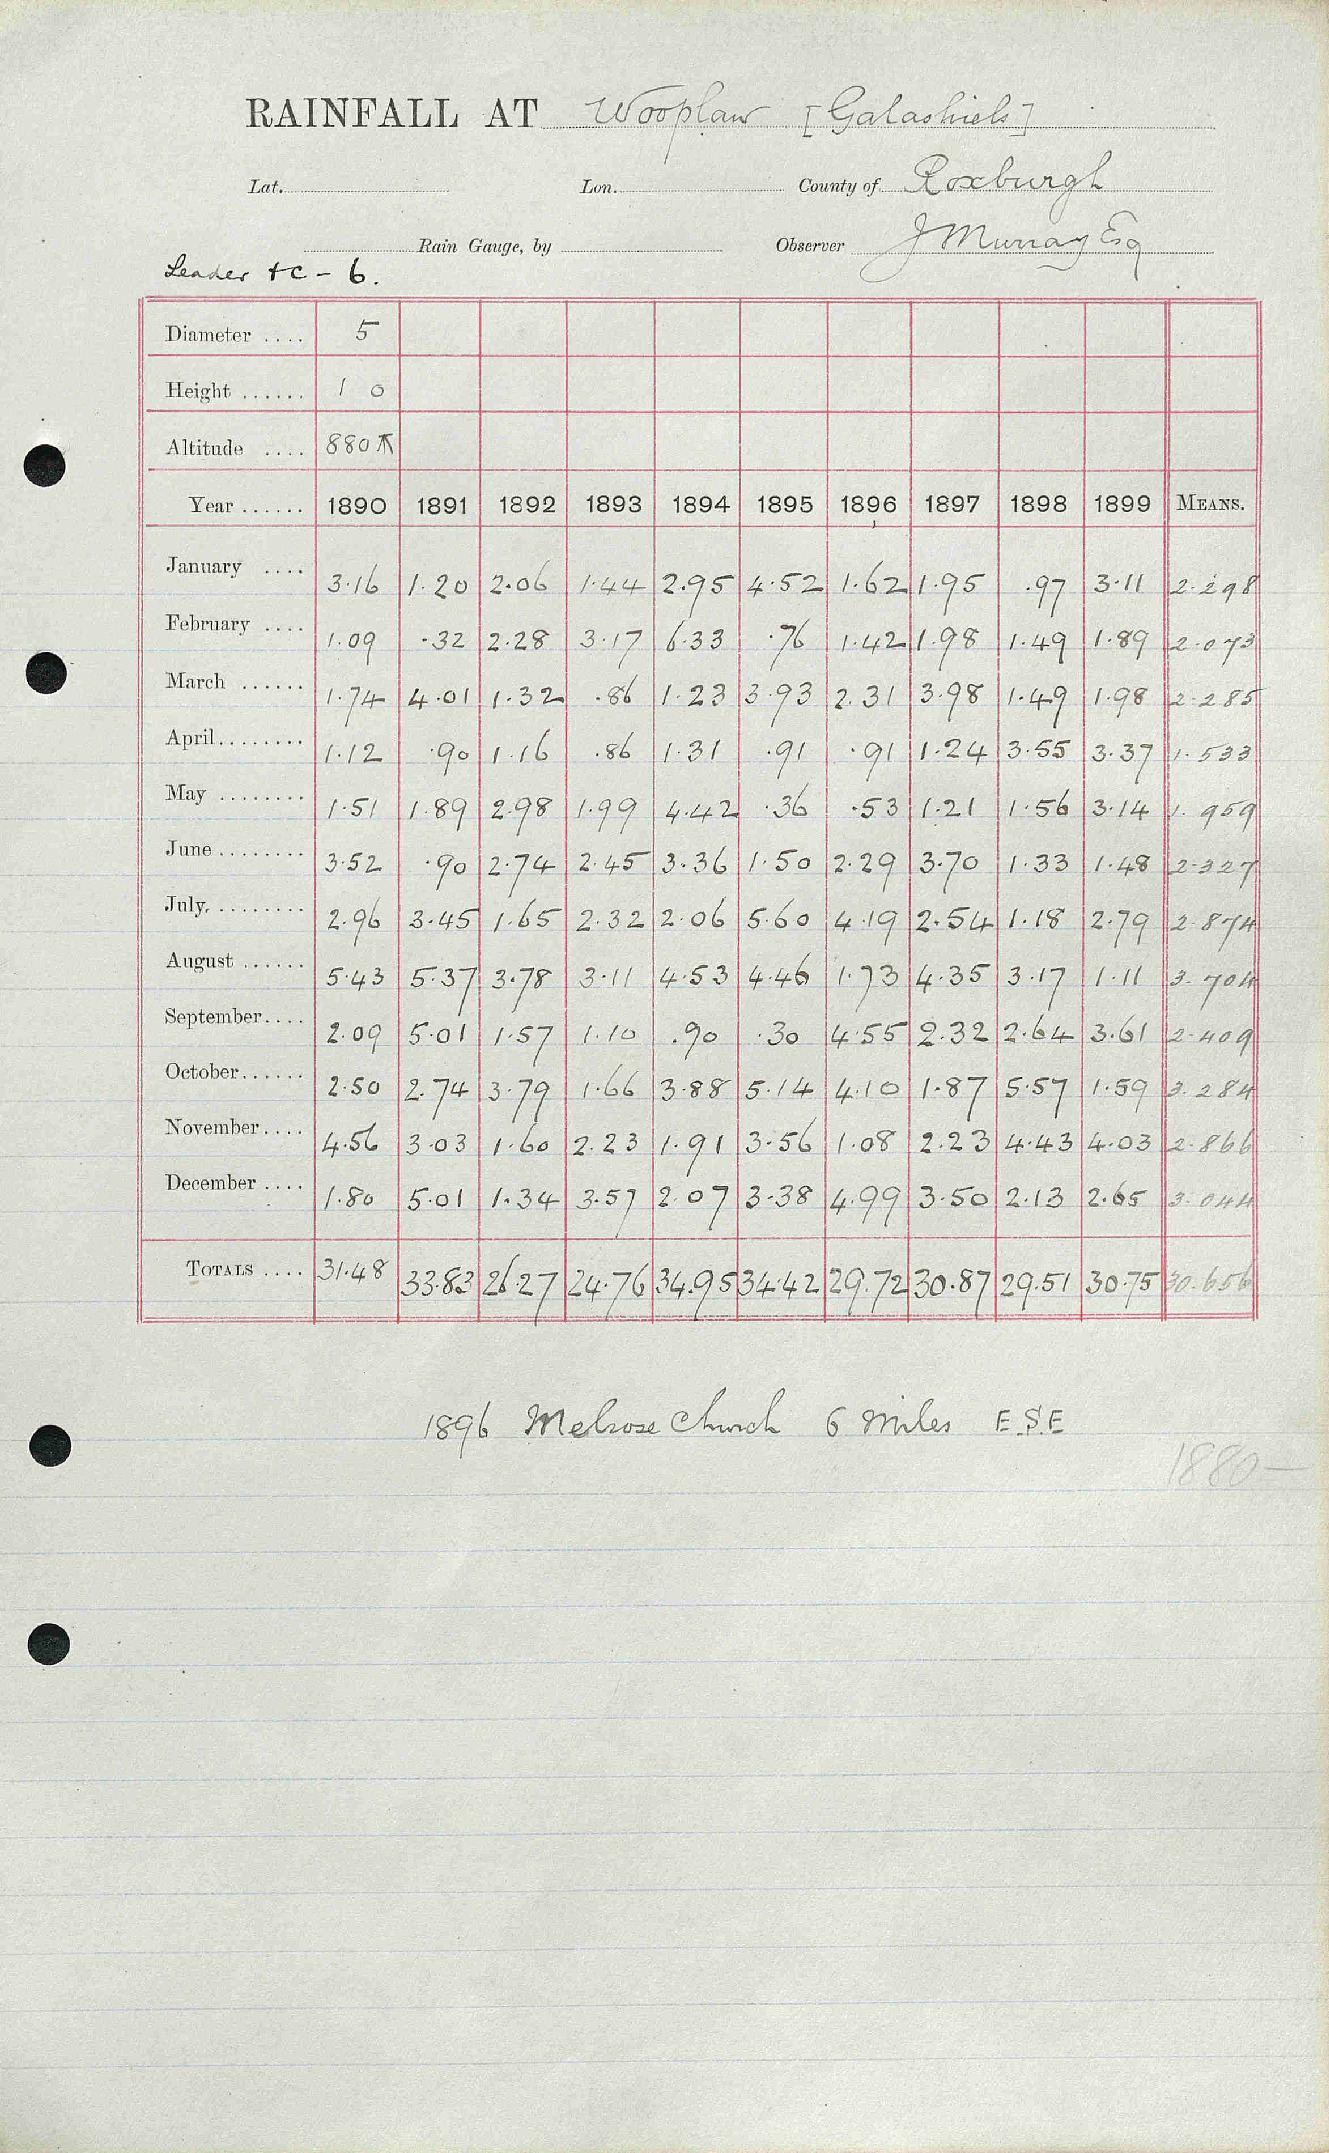 RAINFALL AT Wooplaw [Galashiels]
Lat. Lon. County of Roxburgh
Rain Gauge, by Observer J Murray Esq
Leader &c - 6.
Diameter .... 5
Height ...... 1 0
Altitude .... 880
Year ...... 1890 1891 1892 1893 1894 1895 1896 1897 1898 1899 MEANS.
January .... 3.16 1.20 2.06 1.44 2.95 4.52 1.62 1.95 .97 3.11 2.298
February .... 1.09 .32 2.28 3.17 6.33 .76 1.42 1.98 1.49 1.89 2.073
March ...... 1.74 4.01 1.32 .86 1.23 3.93 2.31 3.98 1.49 1.98 2.285
April........ 1.12 .90 1.16 .86 1.31 .91 .91 1.24 3.55 3.37 1.533
May ........ 1.51 1.89 2.98 1.99 4.42 .36 .53 1.21 1.56 3.14 1.959
June........ 3.52 .90 2.74 2.45 3.36 1.50 2.29 3.70 1.33 1.48 2.327
July. ........ 2.96 3.45 1.65 2.32 2.06 5.60 4.19 2.54 1.18 2.79 2.874
August ...... 5.43 5.37 3.78 3.11 4.53 4.46 1.73 4.35 3.17 1.11 3.704
September.... 2.09 5.01 1.57 1.10 .90 .30 4.55 2.32 2.64 3.61 2.409
October...... 2.50 2.74 3.79 1.66 3.88 5.14 4.10 1.87 5.57 1.59 3.284
November.... 4.56 3.03 1.60 2.23 1.91 3.56 1.08 2.23 4.43 4.03 2.866
December .... 1.80 5.01 1.34 3.57 2.07 3.38 4.99 3.50 2.13 2.65 3.044
TOTALS .... 31.48 33.83 26.27 24.76 34.95 34.42 29.72 30.87 29.51 30.75 30.656
1896 Melrose Church 6 miles E.S.E
1880—